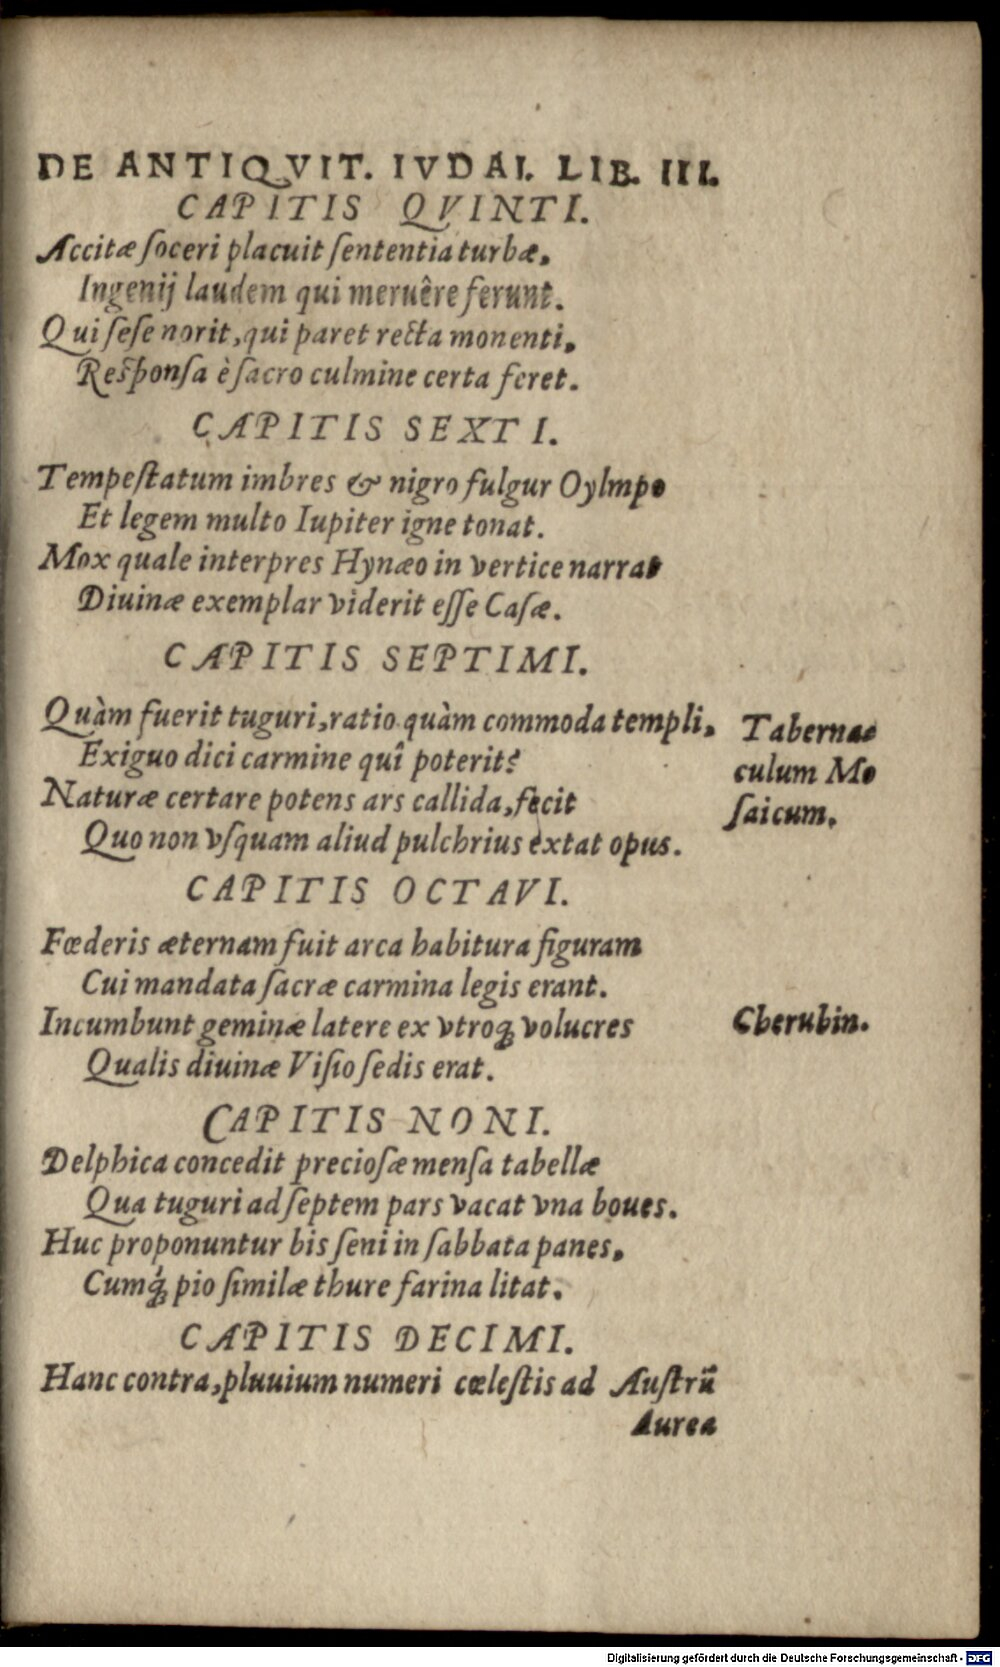 DE ANTIQVIT. IVDAI. LIB. III.
CAPITIS QVINTI.
Accitæ ſoceri placuit ſententia turbæ,
Ingenij laudem qui meruêre ferunt.
Qui ſeſe norit, qui paret recta monenti,
Reſponſa è ſacro culmine certa feret.
CAPITIS SEXTI.
Tempeſtatum imbres & nigro fulgur Oylmpo
Et legem multo Iupiter igne tonat.
Mox quale interpres Hynæo in vertice narrat
Diuinæ exemplar viderit eſſe Caſæ.
CAPITIS SEPTIMI.
Quàm fuerit tuguri, ratio quàm commoda templi,
Exiguo dici carmine quî poterit?
Naturæ certare potens ars callida, fecit
Quo non vſquam aliud pulchrius extat opus.
Tabernac
culum Mo
ſaicum.
CAPITIS OCTAVI.
Fœderis æternam fuit arca habitura figuram
Cui mandata ſacræ carmina legis erant.
Incumbunt geminæ latere ex vtroq; volucres
Qualis diuinæ Viſio ſedis erat.
Cherubin.
CAPITIS NONI.
Delphica concedit precioſæ menſa tabellæ
Qua tuguri ad ſeptem pars vacat vna boues.
Huc proponuntur bis ſeni in ſabbata panes,
Cumq́; pio ſimilæ thure farina litat.
CAPITIS DECIMI.
Hanc contra, pluuium numeri cœleſtis ad Auſtrũ
Aurea
Digitalisierung gefördert durch die Deutsche Forschungsgemeinschaft - DFG